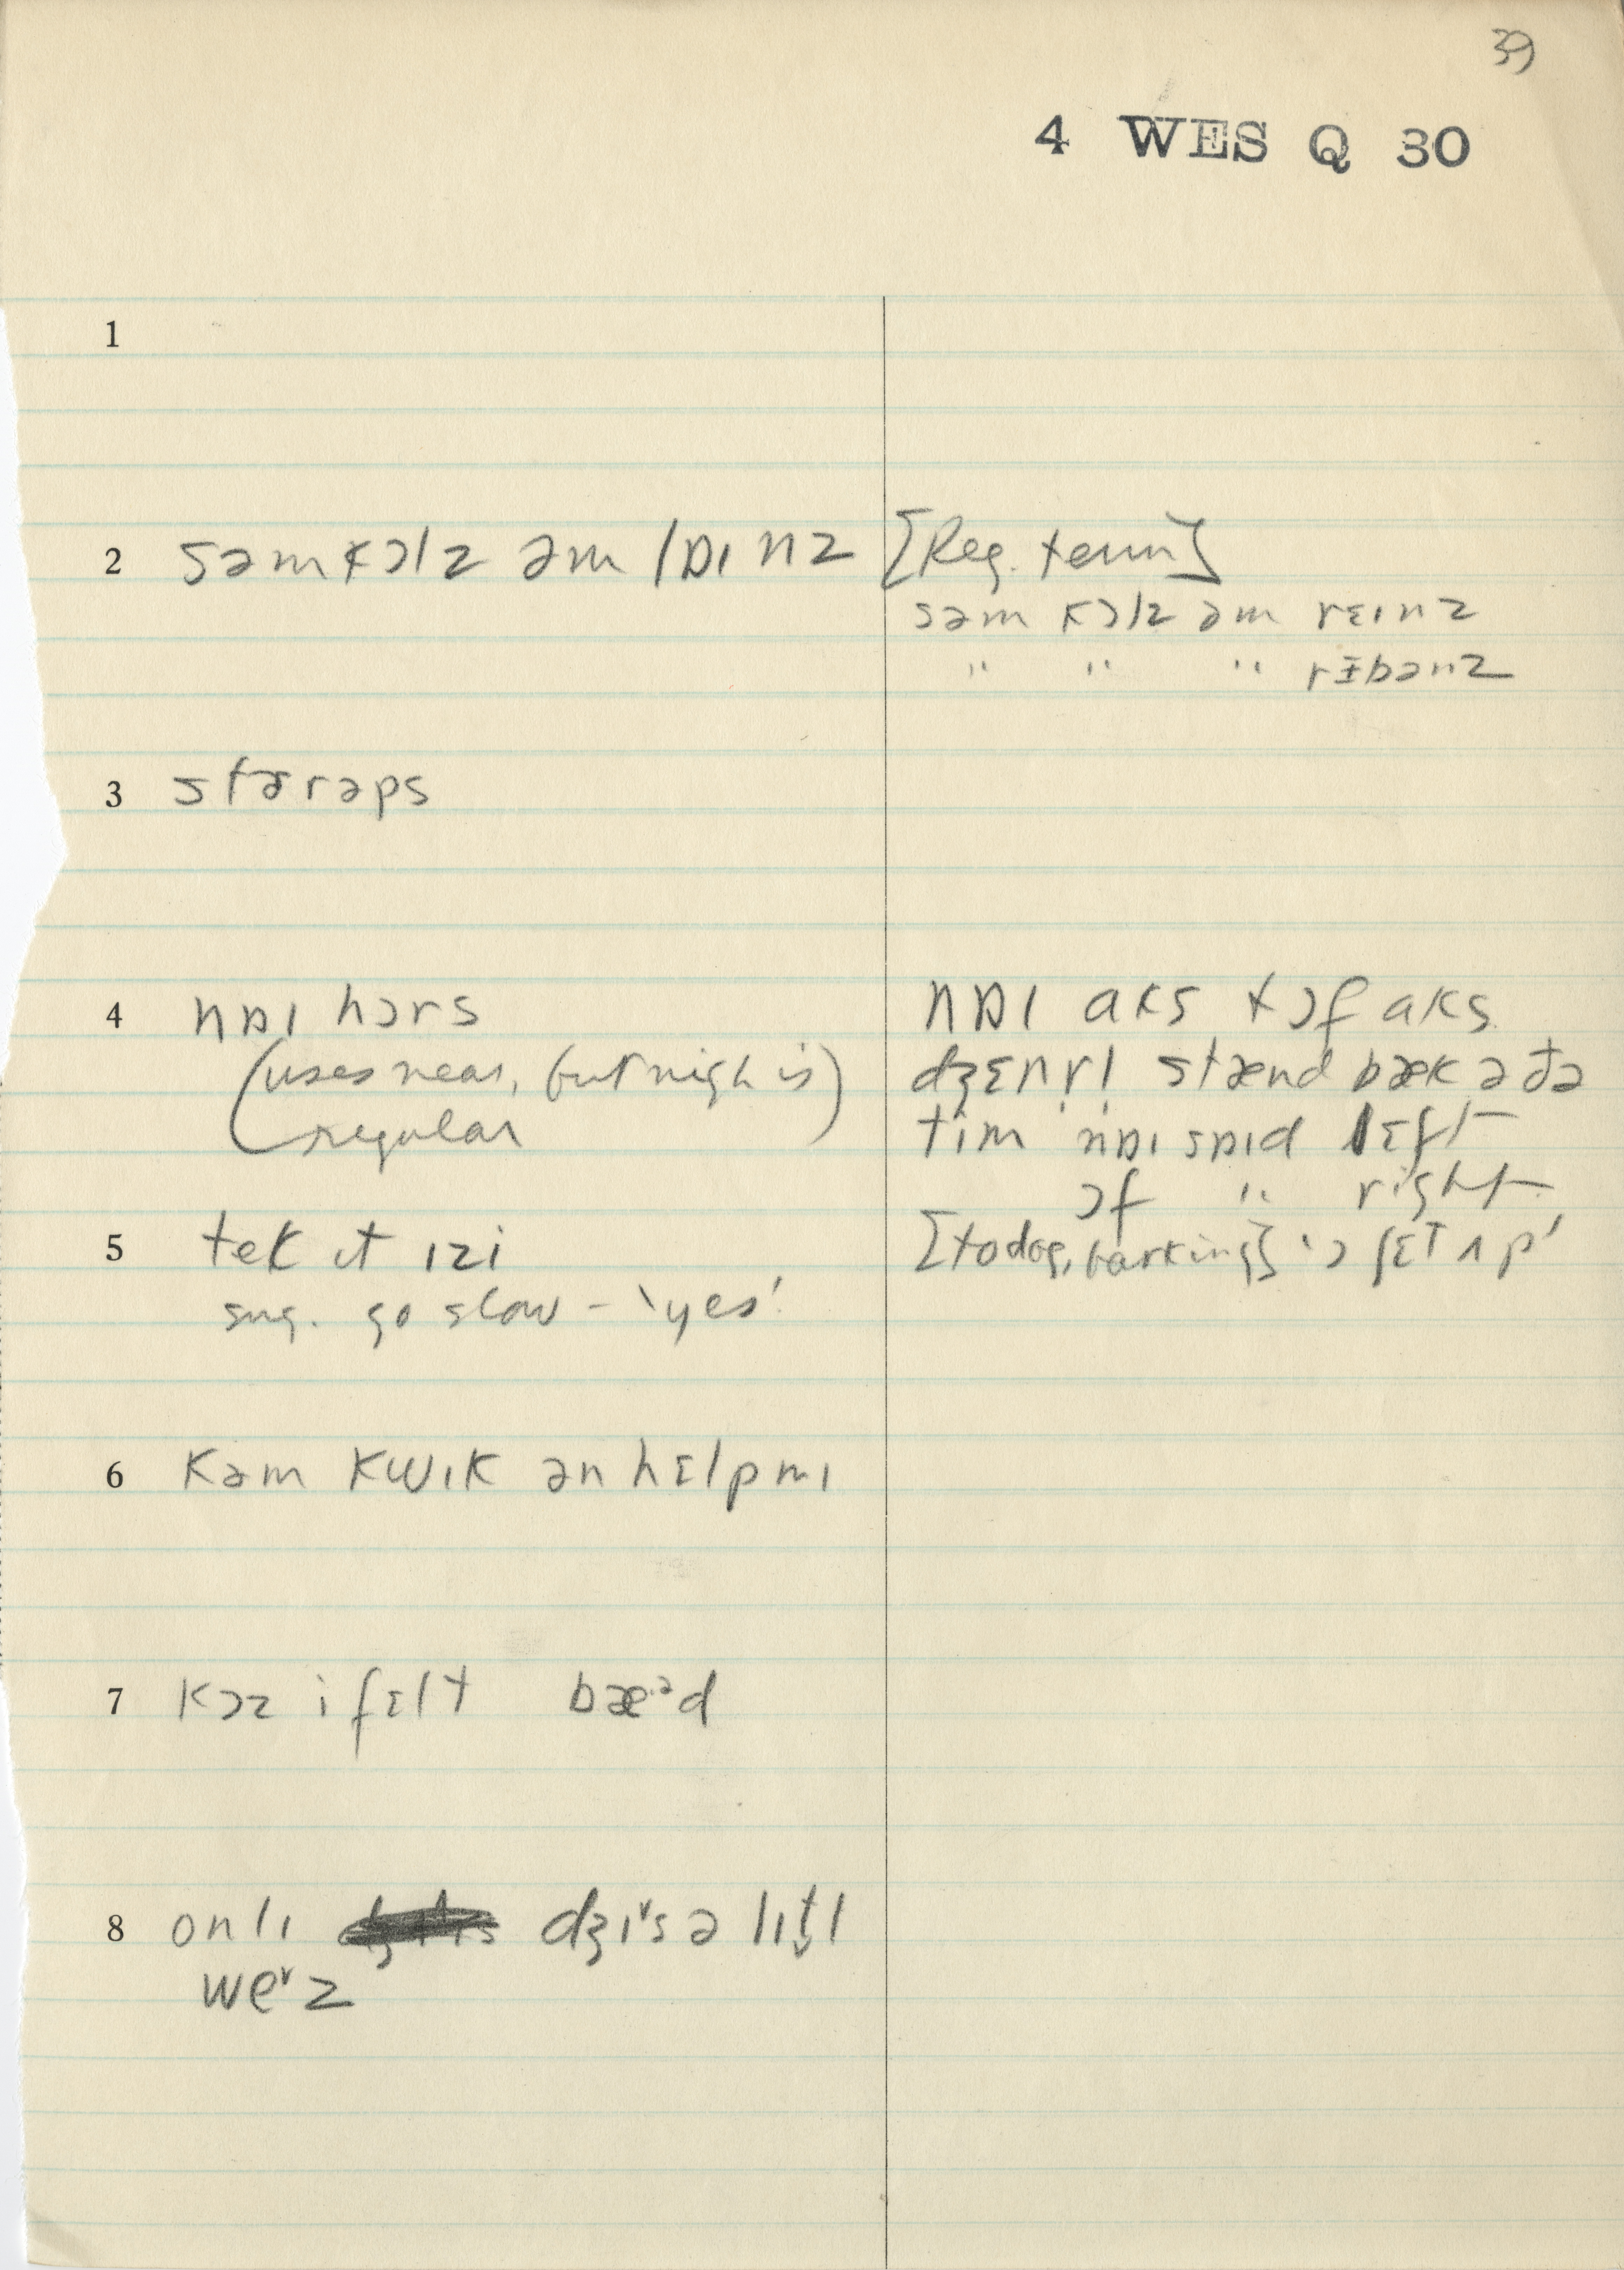 39
4 WES Q 30
1
2 səm kɔlz əm lɒɪnz [Reg. term]
səm kɔlz əm rɛɪnz
" " " rɪbənz
3 stərəps
4 nɒɪ hɔrs
(uses near, but nigh is
regular)
nɒɪ aks tɔf aks
dʒɛnrl stænd bæk ə ðə
tim nɒɪ sɒɪd lɛft
ɔf " right
5 tek ɪt ɪzi
sug. go slow - 'yes'.
[to dog, barking] 'ɔ ʃɛt ʌp'
6 kəm kwɪk ən hɛlp mɪ
7 kɔz i fɛlt bæ·ᵊd
8 onlɪ dʒɪ˅s ə lɪt̬l
we˅z